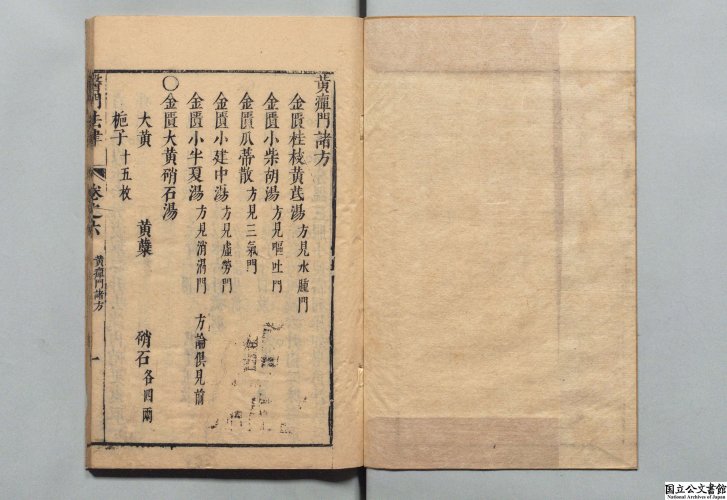 黃癉門諸方
金匱桂枝黃芪湯 方見水腫門
金匱小柴胡湯 方見嘔吐門
金匱瓜蒂散 方見三氣門
金匱小建中湯 方見虛勞門
金匱小半夏湯 方見消渴門 方論俱見前
〇金匱大黃硝石湯
大黃 黃蘗 硝石 各四兩
梔子 十五枚
醫門法律 卷之六 黃癉門諸方 一
国立公文書館
National Archives of Japan